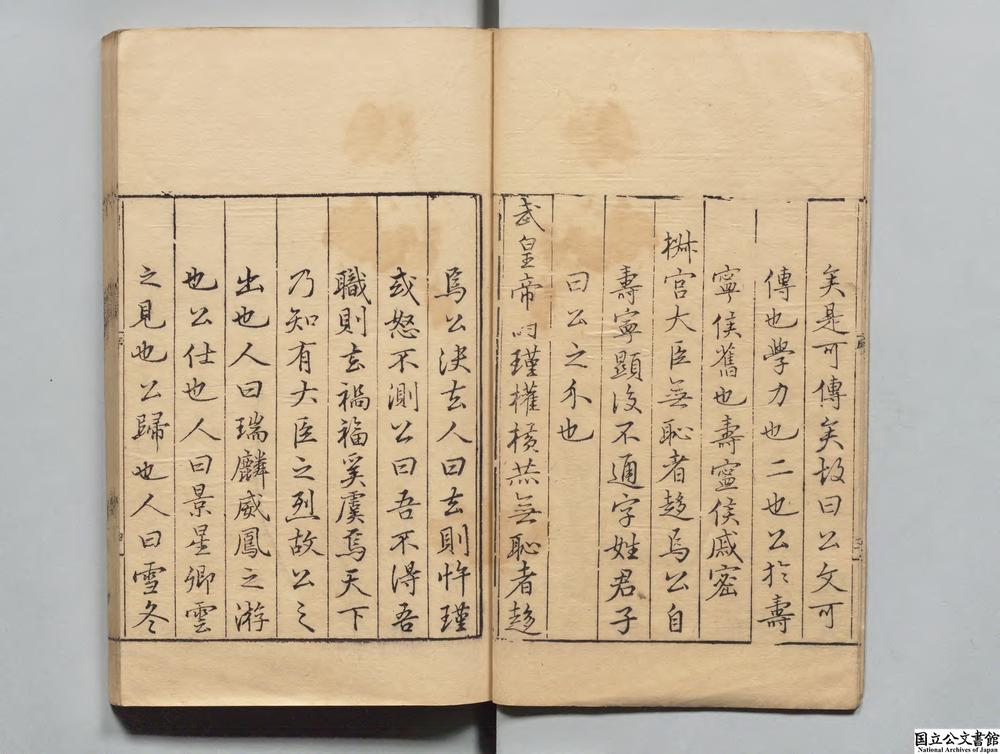 矣是可傳矣故曰公文可
傳也學力也二也公於壽
寧侯舊也壽寧侯戚密
椒宮大臣無恥者趍焉公自
壽寧顯後不通字姓君子
曰公之介也
武皇帝時瑾權横恭無恥者趍
焉公決去人曰去則忤瑾
或怒不測公曰吾不得吾
職則去禍福奚虞焉天下
乃知有大臣之烈故公之
出也人曰瑞麟威鳳之游
也公仕也人曰景星卿雲
之見也公歸也人曰雪冬
国立公文書館
National Archives of Japan